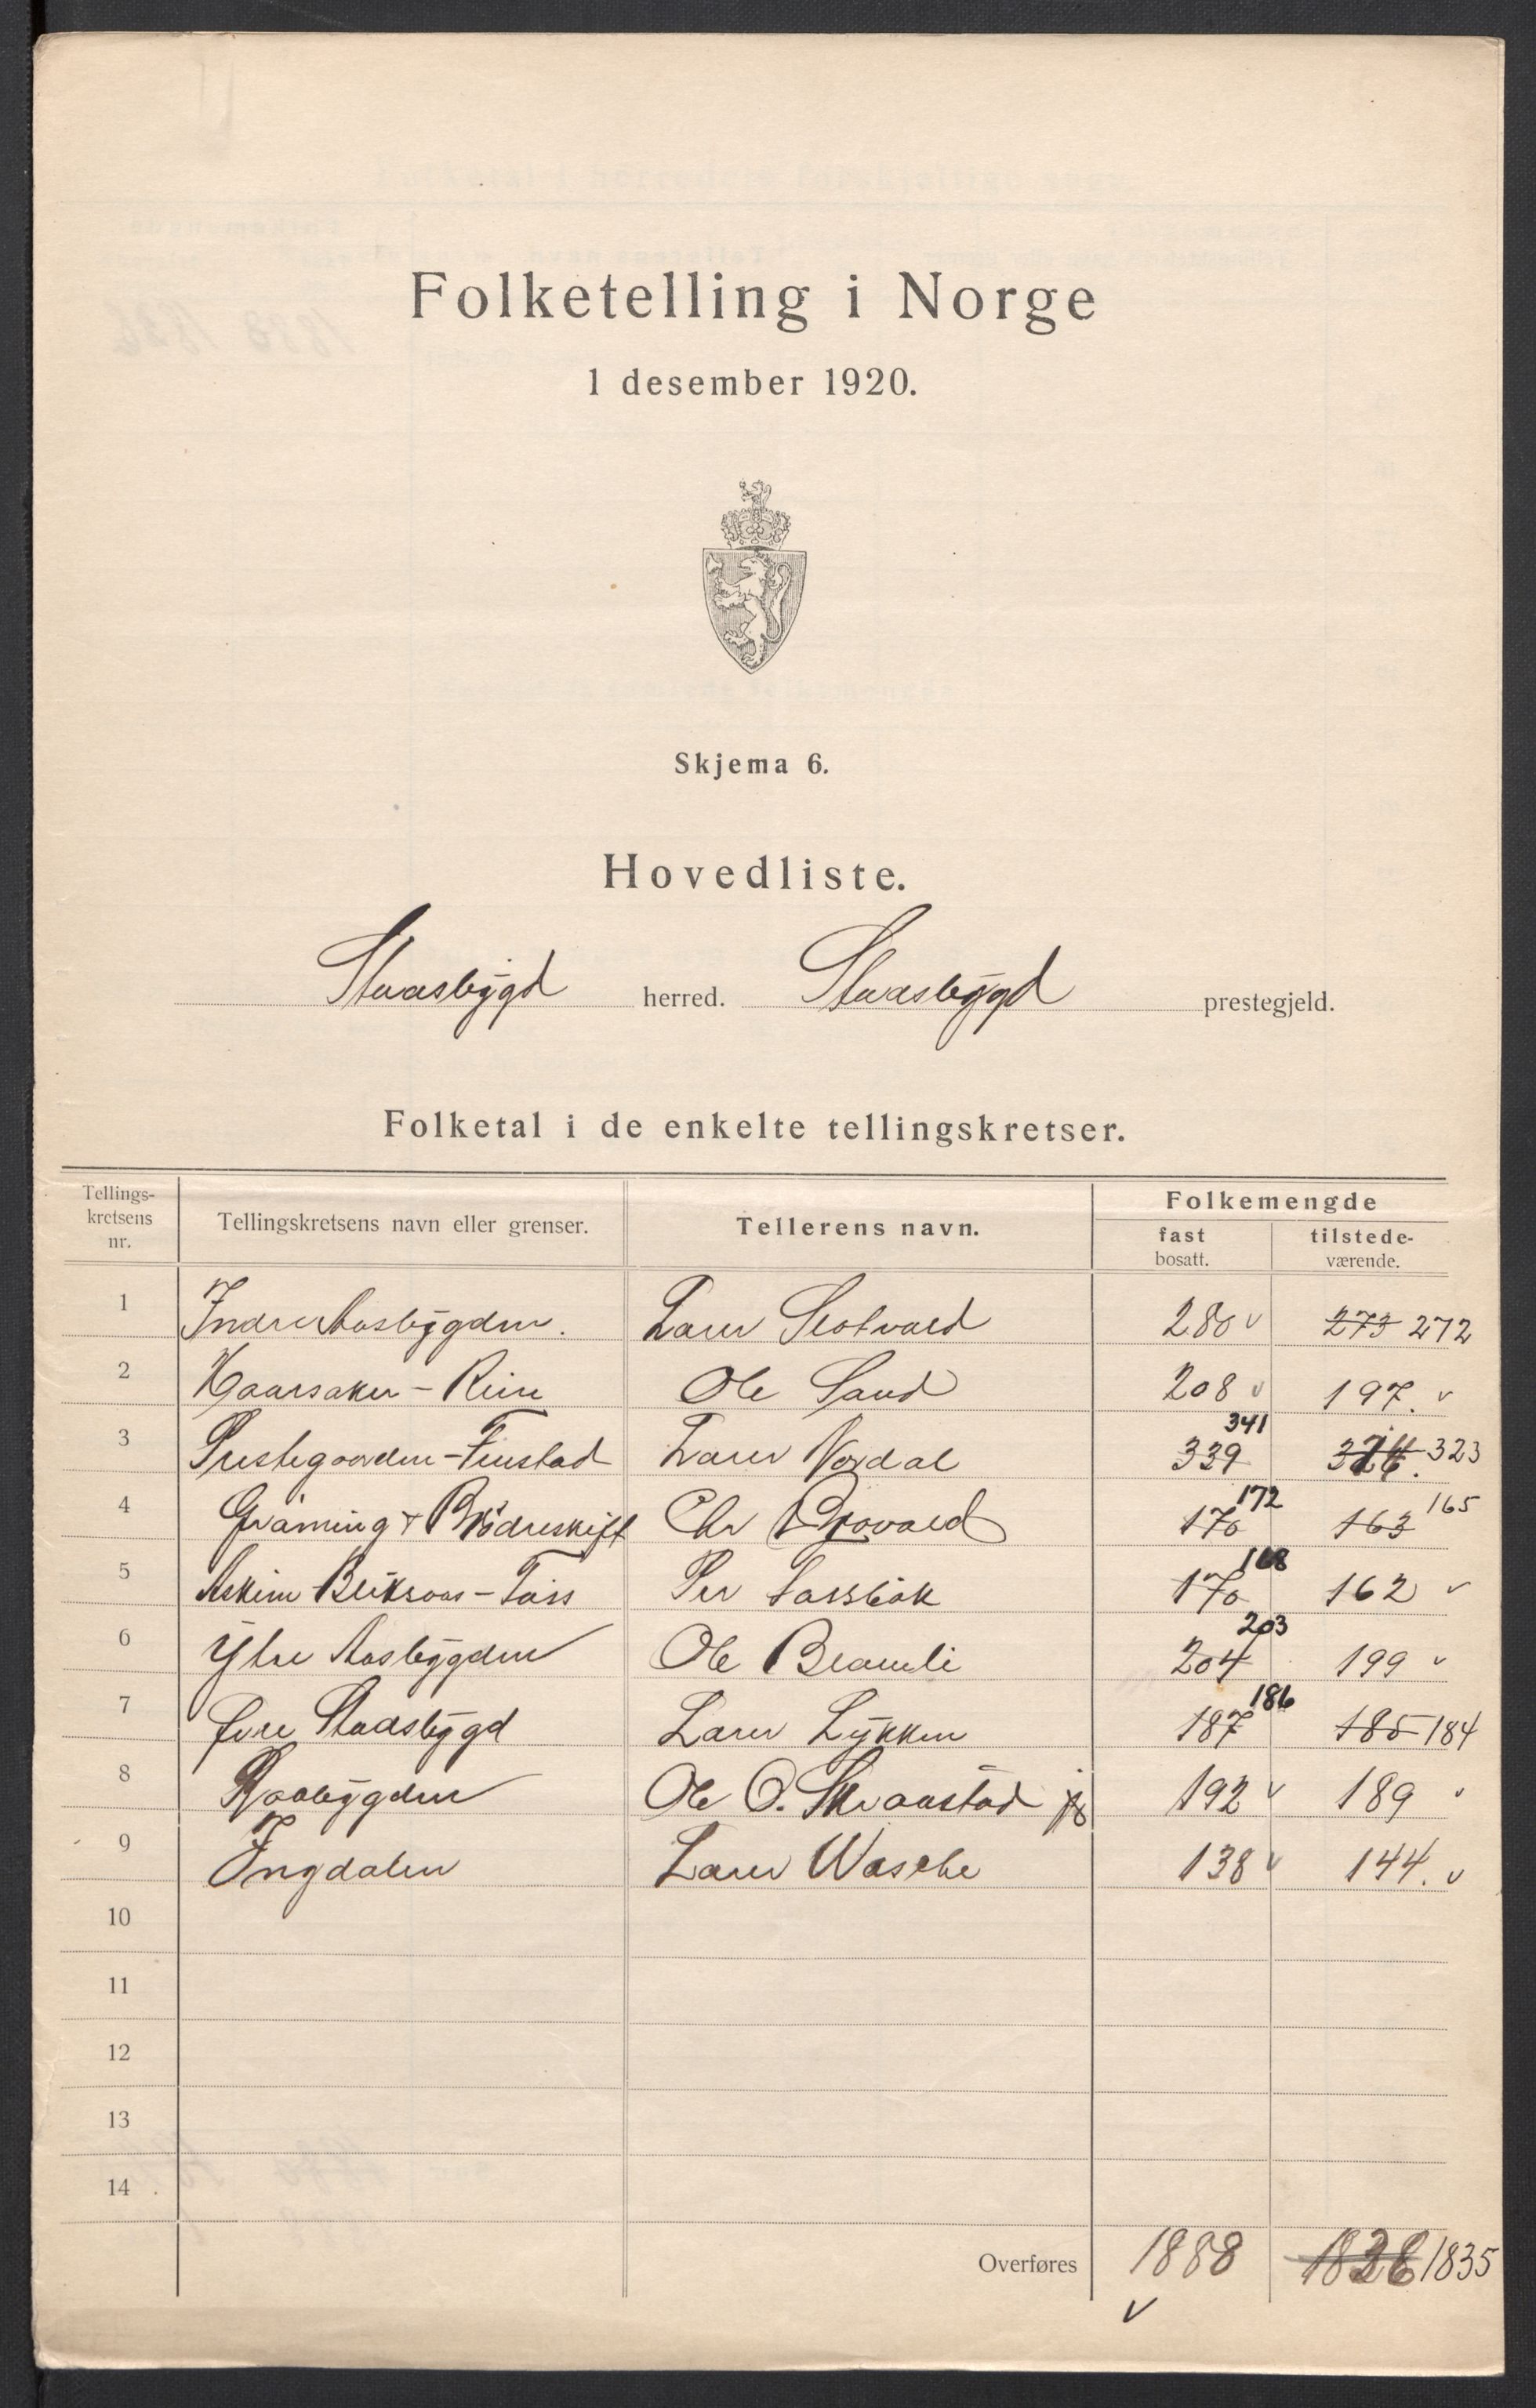 Folketelling i Norge
1 desember 1920.
Skjema 6.
Hovedliste.
Stadsbygd herred. Stadsbygd prestegjeld.
Folketal i de enkelte tellingskretser.
Tellings-kretsens nr. Tellingskretsens navn eller grenser. Tellerens navn. Folkemengde fast bosatt. tilstede-værende.
1 Indre Aasbygden. Lærer 280 v 273 272
2 Haarsaker - Rein Ole Sand 208 v 197. v
3 Prestegaarden - Finstad Lærer Nordal 339 341 323
4 Grønning + Brødreskift Chr 170 172 163 165
5 Askim - Fóss Per 170 168 162 v
6 Ytre Aasbygden Ole Bramli 204 203 199 v
7 Øvre Stadsbygd Lærer Lykken 187 186 185 184
8 Raabygden Ole O. 192 v 189 v
9 Ingdalen Lærer 138 v 144. v
10
11
12
13
14
Overføres 1888 1835
v